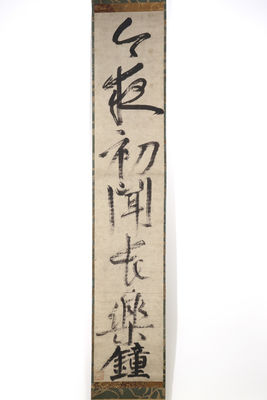 今夜初聞長樂鐘